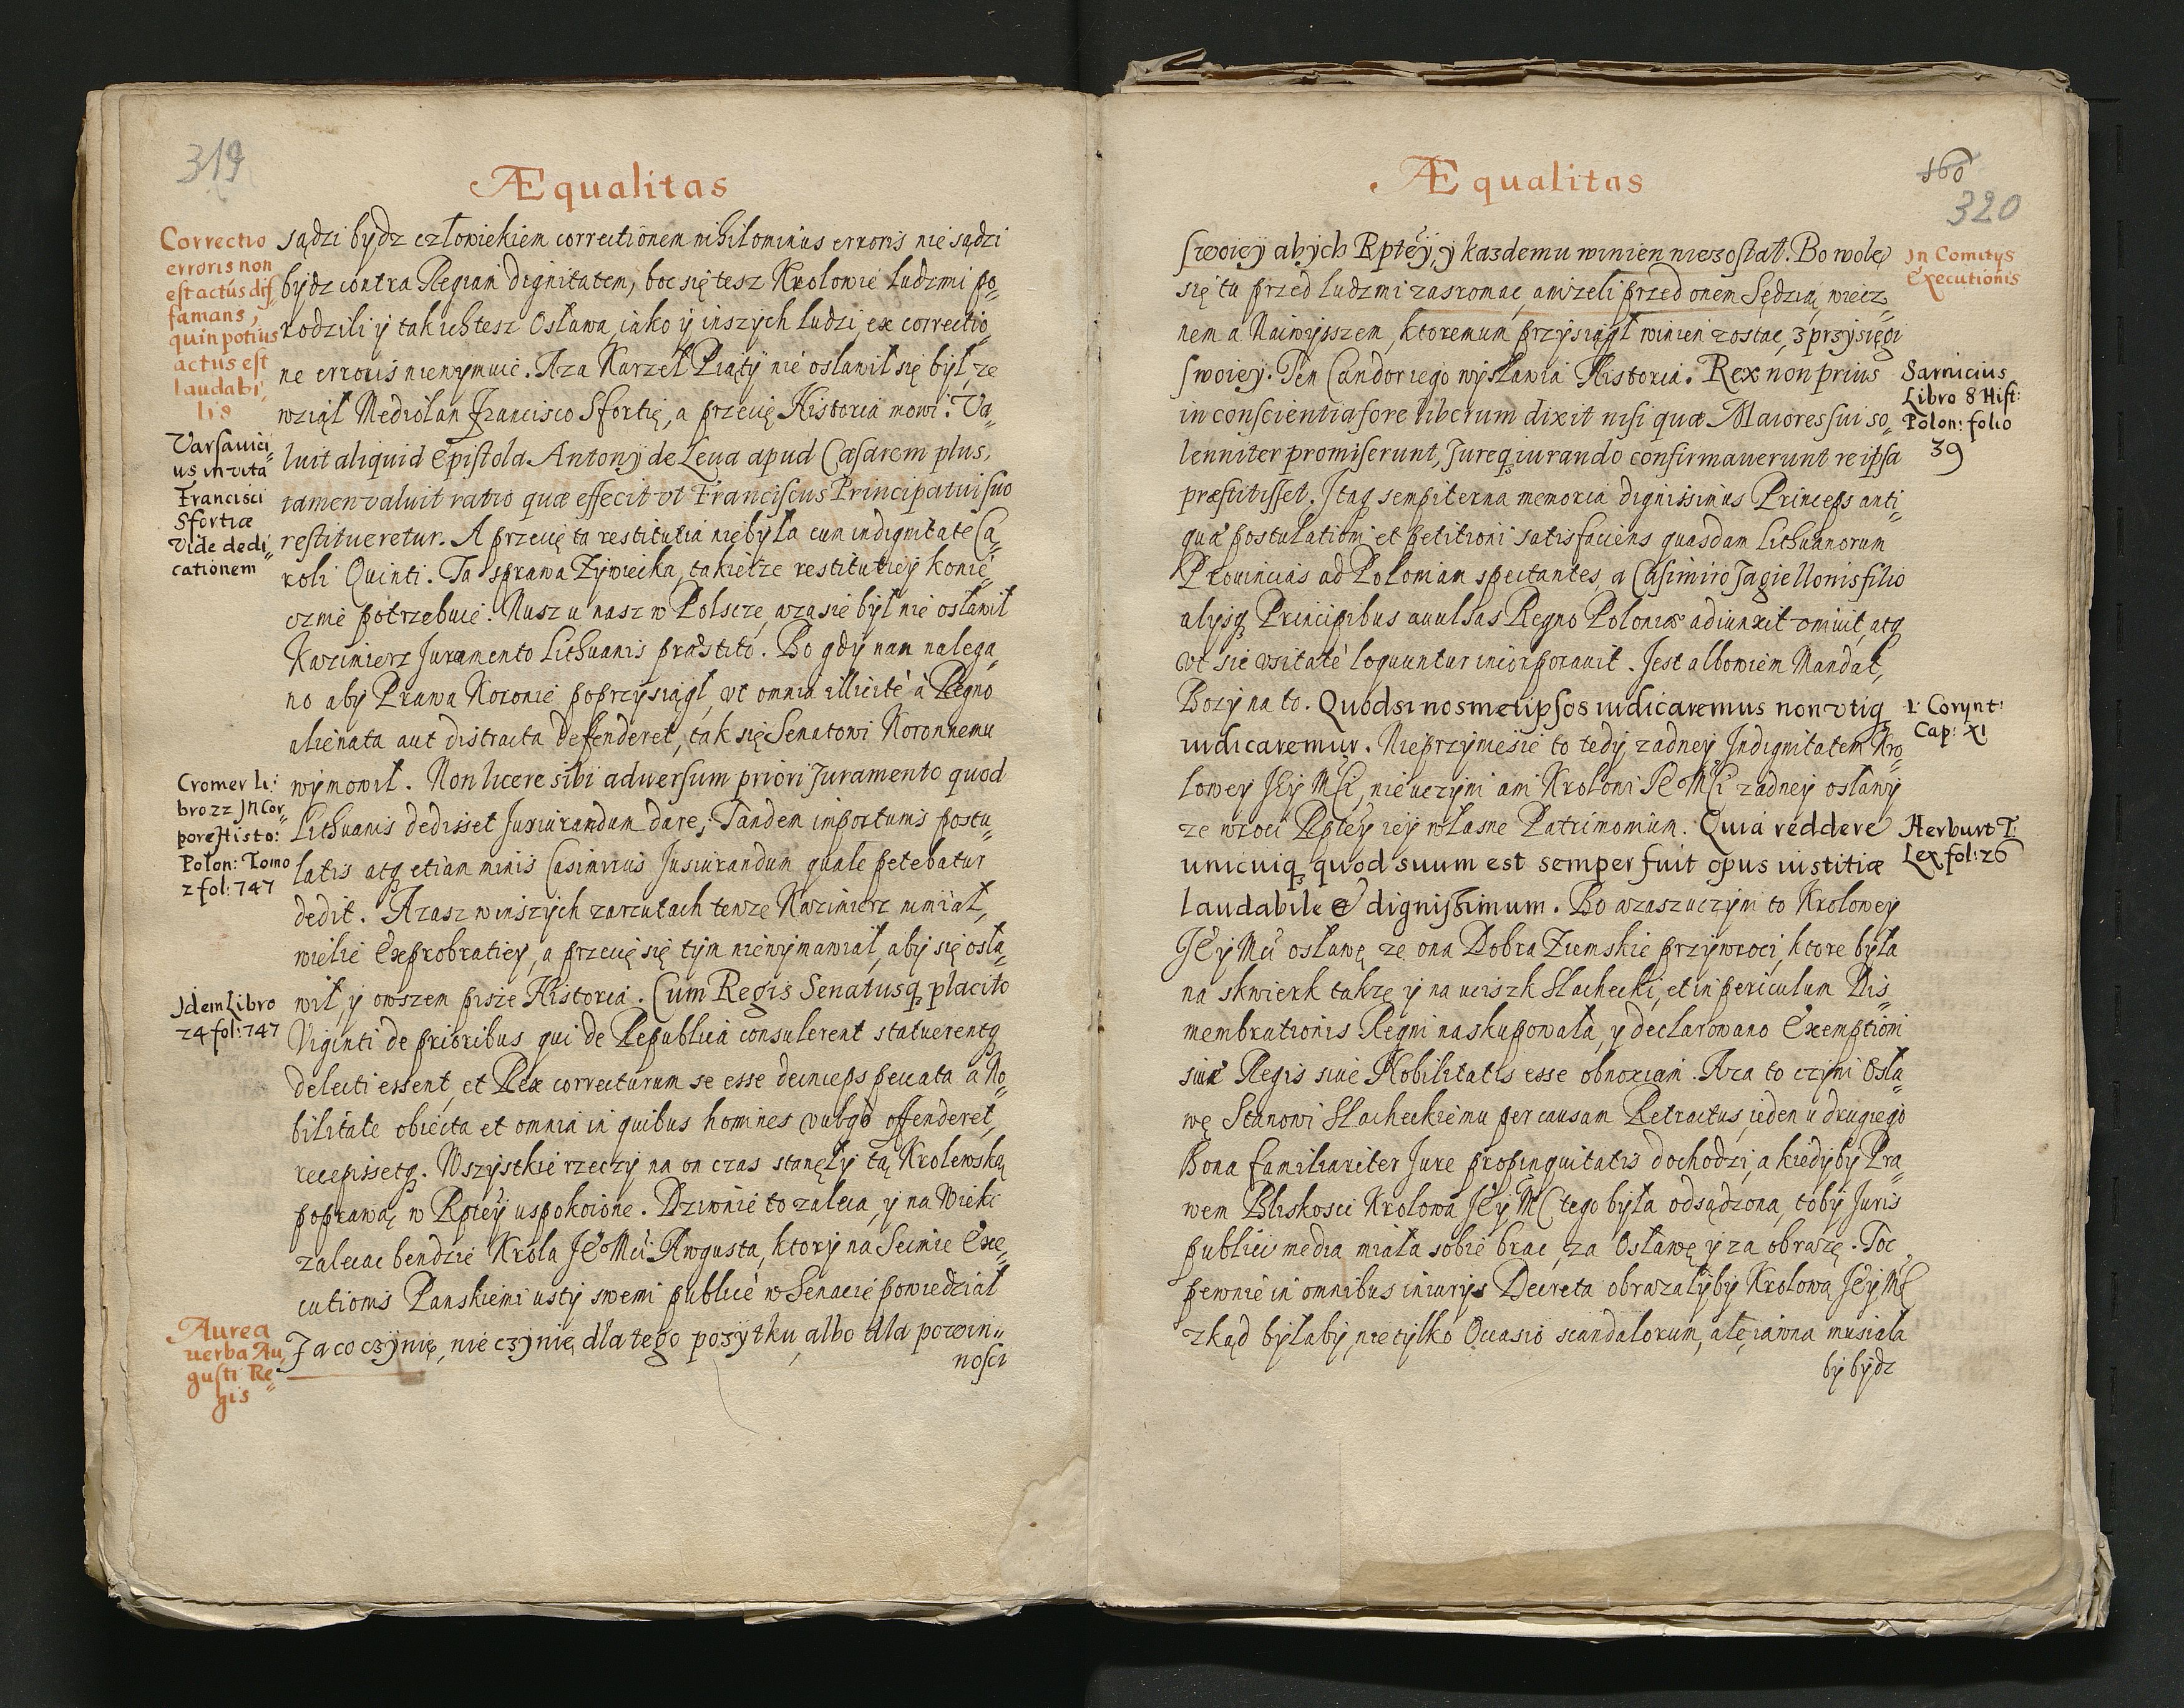 319
Æqualitas
Correctio
erroris non
est actus dif
famans,
quin potius
actus est
laudabi,
lis
Varsauici„
us in vita
Francisci
Sfortiæ
Vide dedi„
cationem
Cromer li:
bro 22 JN Cor„
pore Histo:
Polon: Tomo
2 fol: 747
Jdem Libro
24 fol: 747
Aurea
uerba Au,
gusti Re„
gis
sądzi bydz człowiekiem correctionem nihilominus erroris nie sądzi
bydz contra Regiam dignitatem, boc się tesz Krolowie ludzmi po„
rodzili y takichtesz Osława, iako y inszych ludzi, ex correctio„
ne erroris nieuymuie. Aza Karzeł Piąty nie osławił się był, ze
wziął Mediolan Francisco Sfortię, a przecię Historia mowi: Va„
luit aliquid Epistola Antony de Leua apud Cæsarem plus,
tamen valuit ratio quæ effecit vt Franciscus Principatui suo
restitueretur. A przecię ta restitutia niebyła cum indignitate Ca„
roli Quinti. Ta sprawa Zywiecka, takieize restitutiey konie„
cznie potrzebuie. Nusz u nasz w Polscze, azasie był nie osławił
Kazimierz Juramento Lithuanis præstito. Bo gdy nan nalega„
no aby Prawa Koronie poprzysiągł, vt omnia illicitè à Regno
alienata aut distracta defenderet, tak się Senatowi Koronnemu
wymowił. Non licere sibi aduersum priori Juramento quod
Lithuanis dedisset Jusiurandum dare; Tandem importunis postu„
latis atq etiam minis Casimirus Jusiurandum quale petebatur
dedit. Azasz winszych zarzutach tenze Kazimierz niemiał,
wielie Exprobratiey, a przecię się tym niewymawiał, aby się osła„
wił, y owszem pisze Historia. Cum Regis Senatusq placito
Viginti de prioribus qui de Republica consulerent statuerentq
delecti essent, et Rex correcturum se esse deinceps peccata a No„
bilitate obiecta et omnia in quibus homines vulgò offenderet,
recepissetq. Wszystkie rzeczy na on czas stanęły tą Krolewską
poprawą w Rptey uspokoione. Dziwnie to zaleca, y na Wieki
zalecac bendzie Krola JEo Mci Awgusta, ktory na Seimie Exe„
cutionis Panskiemi usty swemi publicè w Senacie powiedział
Ja co czynię, nie czynię dla tego pozytku, albo dla powin„
nosci
160
320
Æqualitas
In Comitys
Executionis
Sarnicius
Libro 8 Hist:
Polon: folio
39
1 Corynt:
Cap: XI
Herburt T:
Lex fol: 26
swoiey abych Rptey, y kazdemu winien niezostał. Bo wolę
się tu przed ludzmi zasromac, anizeli przed onem Sędzią wiecz„
nem a Naiwyszszem, ktoremum przysiągł winien zostac, z przysięgi
swoiey. Ten Candor iego wysławia Historia. Rex non prius
in conscientia fore liberum dixit nisi quæ Maiores sui so„
lenniter promiserunt, Jureq iurando confirmauerunt re ipsa
præstitisset. Itaq sempiterna memoria dignissimus Princeps anti„
qua postulationi et petitioni satisfaciens quasdam Lithuanorum
Prouincias ad Poloniam spectantes, a Casimiro Jagiellonis filio
alysq Principibus auulsas Regno Poloniæ adiunxit vniuit, atq
vt sic vsitatè loquuntur incorporauit. Jest albowiem Mandat,
Bozy na to. Quod si nosmetipsos iudicaremus non vtiq
iudicaremur. Nieprzyniesie to tedy zadney Indignitatem Kro„
lowey JEy Mści, nieuczyni ani Krolowi JE Mści zadney osławy
ze wroci Rptey iey własne Patrimonium. Quia reddere
unicuiq quod suum est semper fuit opus iustitiæ
laudabile & dignissimum. Bo azasz uczyni to Krolowey
JEy Mci osławę ze ona Dobra Ziemskie przywroci, ktore była
na skwierk takze y na ucisk Slachecki, et in periculum Dis„
membrationis Regni naskupowała, y declarowano Exemptioni
siue Regis siue Nobilitatis esse obnoxiam. Aza to czyni Osła„
wę Stanowi Slacheckiemu per causam Retractus, ieden u drugiego
Bona familiariter Jure propinquitatis dochodzi, a kiedyby Pra„
wem Bliskosci Krolowa JEy Mć tego była odsądzona, toby Juris
publici media miała sobie brac, za Osławę y za obrazę. Toc
pewnie in omnibus iniurys Decreta obrazałyby Krolową JEy Mć
zkąd byłaby, nie tylko Occasio scandalorum, ale iawna musiała
by bydz